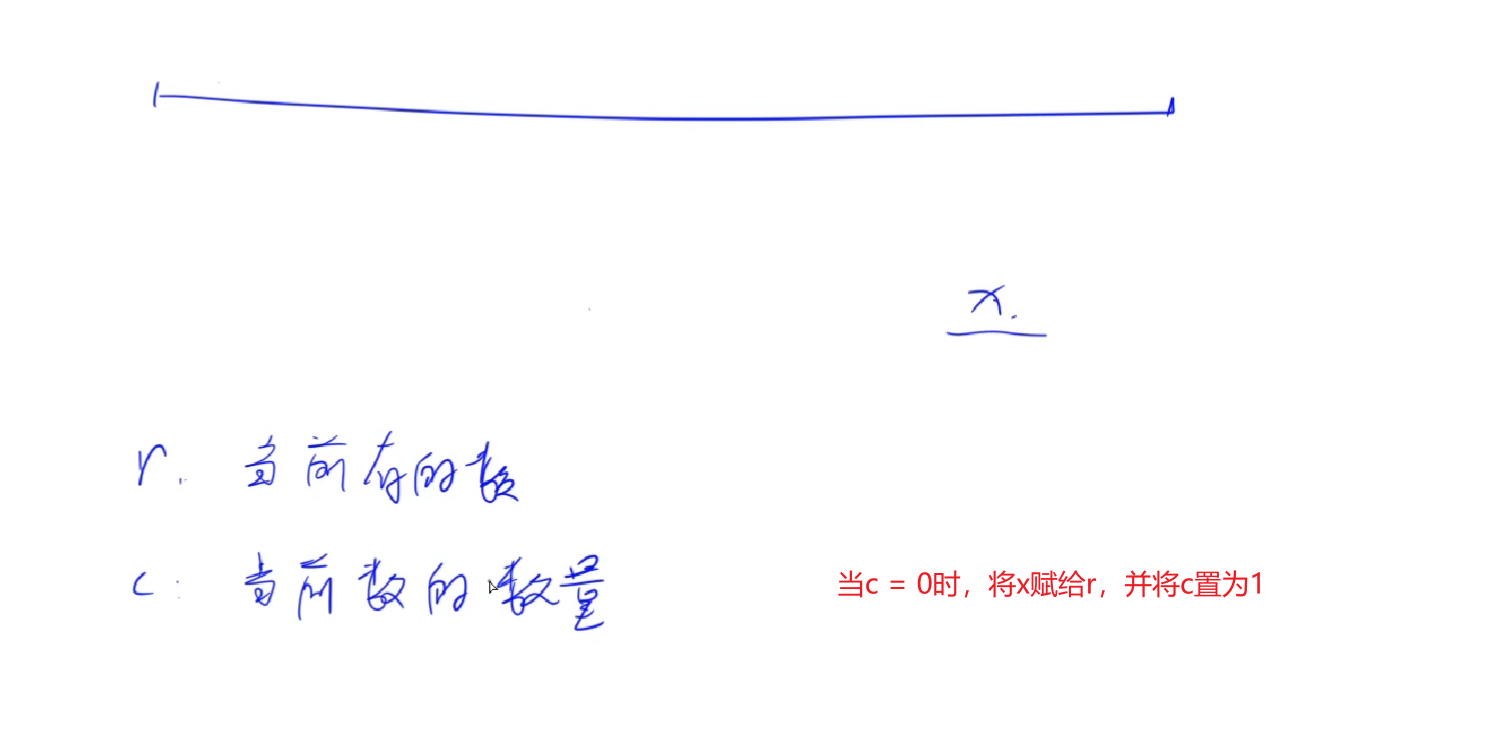 x.
r. 当前存的数
c: 当前数的数量
当c = 0时，将x赋给r，并将c置为1